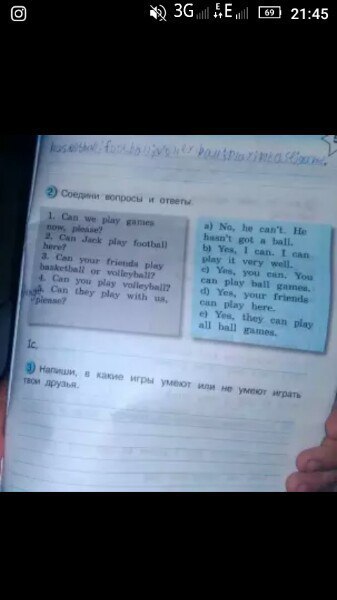 3G
E
69
21:45
2 Соедини вопросы и ответы.
1. Can we play games
now, please?
2. Can Jack play football
here?
3. Can your friends play
basketball or volleyball?
4. Can you play volleyball?
5. Can they play with us,
please?
a) No, he can't. He
hasn't got a ball.
b) Yes, I can. I can
play it very well.
c) Yes, you can. You
can play ball games.
d) Yes, your friends
can play here.
e) Yes, they can play
all ball games.
1c,
3 Напиши, в какие игры умеют или не умеют играть
твои друзья.